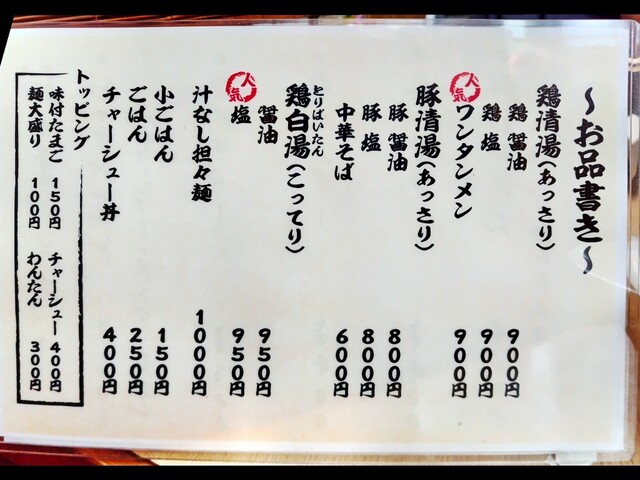 ～お品書き～
鶏清湯(あっさり)
鶏 醤油 900円
鶏 塩 900円
人気 ワンタンメン 900円
豚清湯(あっさり)
豚 醤油 800円
豚 塩 800円
中華そば 600円
とりぱいたん
鶏白湯(こってり)
醤油 950円
人気 塩 950円
汁なし担々麺 1000円
小ごはん 150円
ごはん 250円
チャーシュー丼 400円
トッピング
味付たまご 150円 チャーシュー 400円
麺大盛り 100円 わんたん 300円